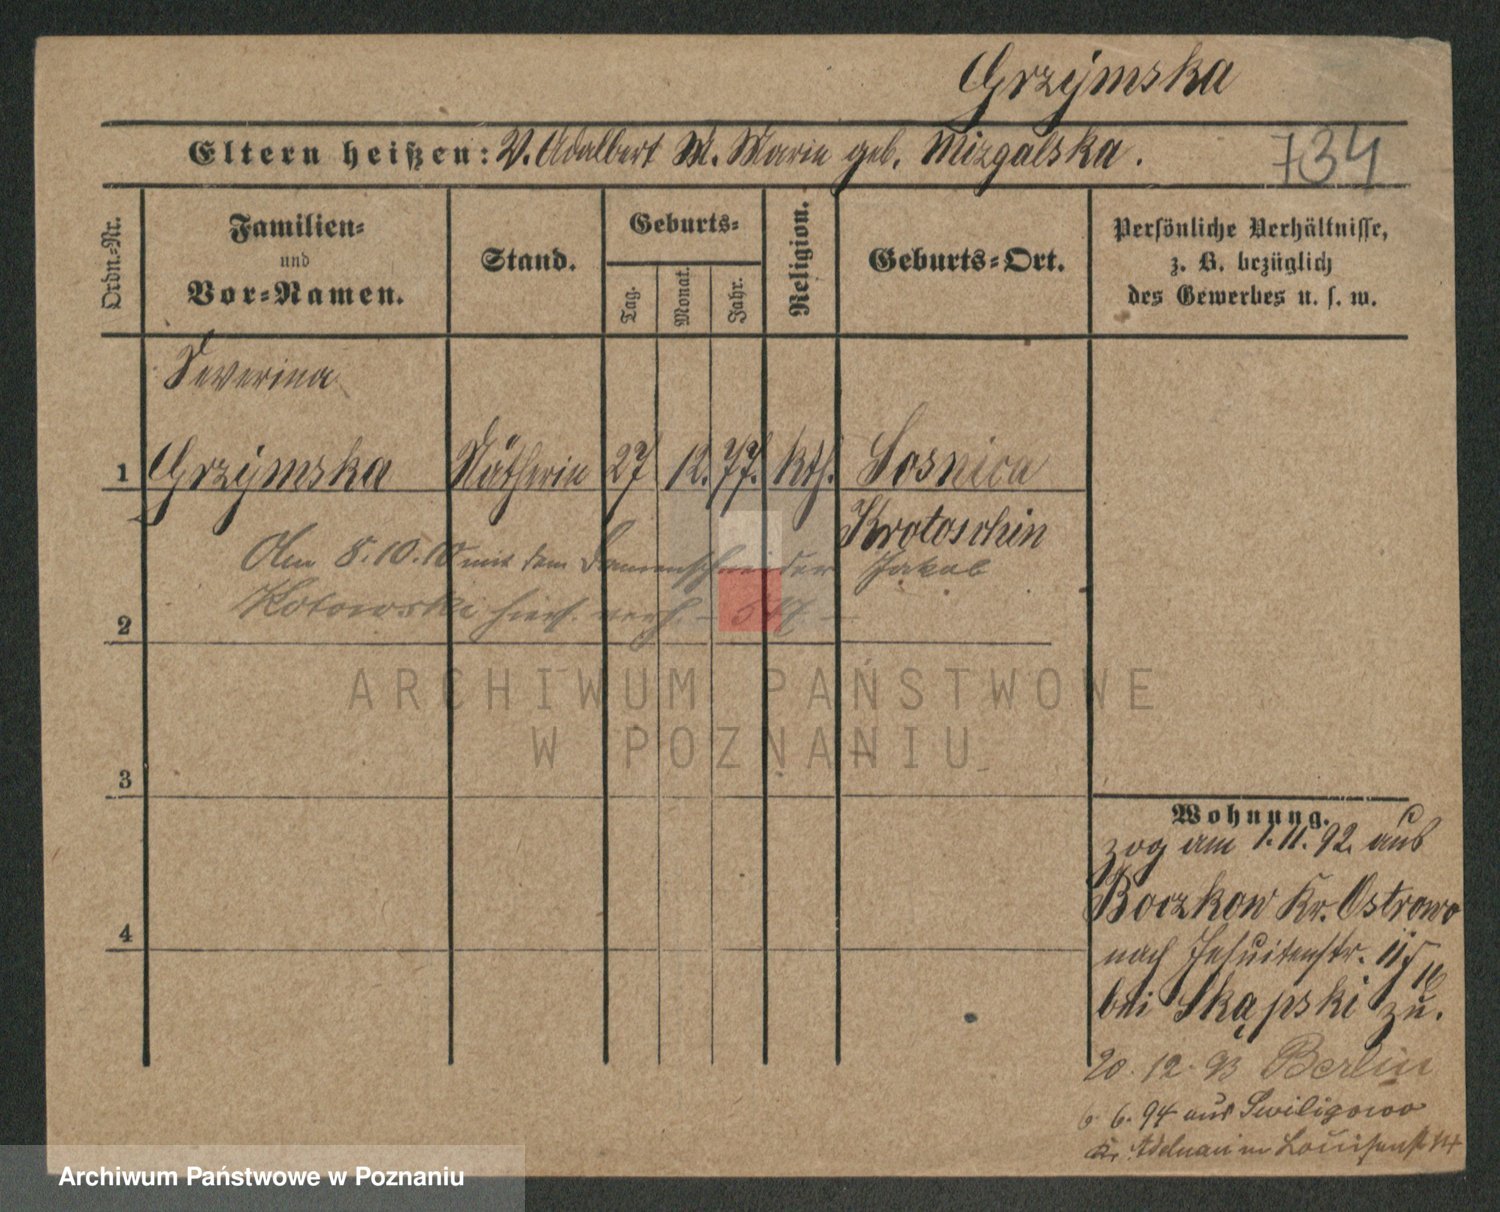 Grzymska
Eltern heißen: V. Adalbert M. Marie geb. Mizgalska.
734
Ordn.-Nr.
Familien-
und
Vor-Namen.
Stand.
Geburts-
Tag.
Monat.
Jahr.
Religion.
Geburts-Ort.
Persönliche Verhältnisse,
z. B. bezüglich
des Gewerbes u. s. w.
Severina
1 Grzymska Nätherin 27 12. 77. kth. Sosnica
Krotoschin
Am 8.10.10 mit dem Damenschneider Jakob
Kotowski hies. verh. –
2
3
4
Wohnung.
zog am 1.11.92. aus
Boczkow Kr. Ostrowo
nach Jesuitenstr. 11
bei Skąpski zu.
20. 12. 93 Berlin
6. 94 aus
Kr. Adelnau Louisenst
ARCHIWUM PAŃSTWOWE
W POZNANIU
Archiwum Państwowe w Poznaniu